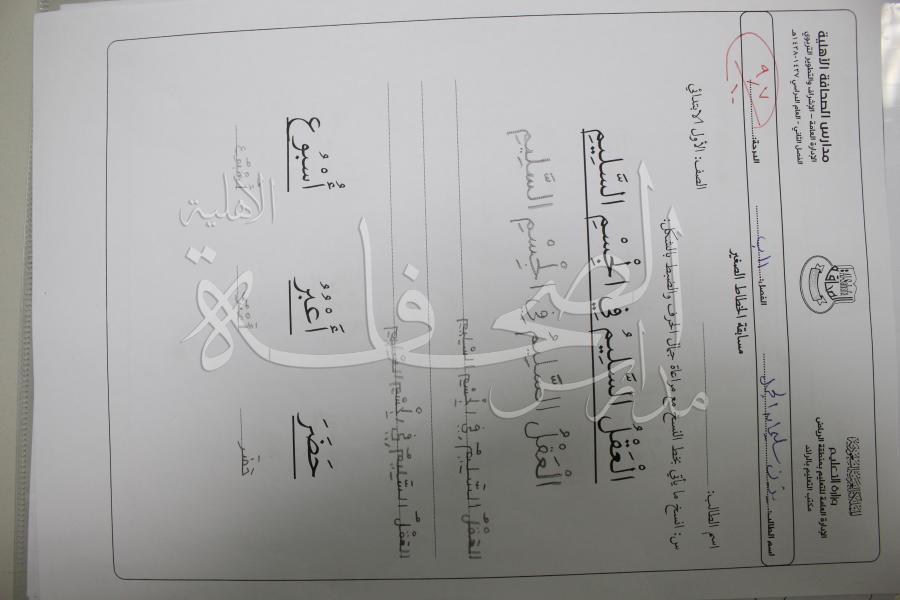 مدارس الصحافة الأهلية
الإدارة العامة - الإشراف والتطوير التربوي
الفصل الثاني - العام الدراسي ١٤٣٧-١٤٣٨هـ
وزارة التعليم
الإدارة العامة للتعليم بمنطقة الرياض
مكتب التعليم بالرائد
اسم الطالب:
الفصل:
الدرجة: ٩/٧
١٠
مسابقة الخطاط الصغير
اسم الطالب:
الصف: الأول الابتدائي
س: انسخ ما يأتي بخط النسخ مع مراعاة جمال الحرف والضبط بالشكل:
الْعَقْلُ السَّلِيمُ فِي الْجِسْمِ السَّلِيمِ
الْعَقْلُ السَّلِيمُ فِي الْجِسْمِ السَّلِيمِ
العَقْلُ السَّلِيمُ فِي الجِسْمِ السَّلِيمِ
العَقْلُ السَّلِيمُ فِي الجِسْمِ السَّلِيمِ
حَضَرَ أَغْبُرُ أُسْبُوعُ
حَضَرَ
مدارس الصحافة الأهلية